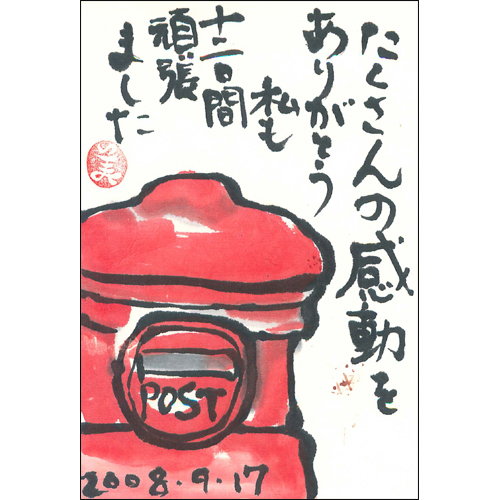 たくさんの感動を
ありがとう
私も
十二日間
頑張
ました
POST
2008.9.17